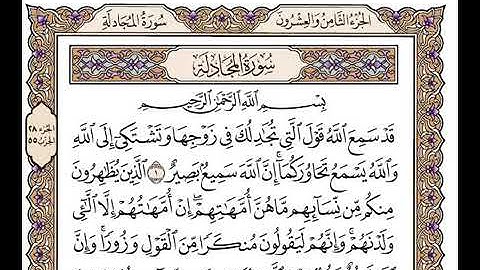 الجزء الثامن والعشرون
سورة المجادلة
سورة المجادلة
بسم الله الرحمن الرحيم
قَدْ سَمِعَ ٱللَّهُ قَوْلَ ٱلَّتِى تُجَٰدِلُكَ فِى زَوْجِهَا وَتَشْتَكِىٓ إِلَى ٱللَّهِ
وَٱللَّهُ يَسْمَعُ تَحَاوُرَكُمَآ إِنَّ ٱللَّهَ سَمِيعٌۢ بَصِيرٌ ١ ٱلَّذِينَ يُظَٰهِرُونَ
مِنكُم مِّن نِّسَآئِهِم مَّا هُنَّ أُمَّهَٰتِهِمْ ۖ إِنْ أُمَّهَٰتُهُمْ إِلَّا ٱلَّٰٓـِٔى
وَلَدْنَهُمْ ۚ وَإِنَّهُمْ لَيَقُولُونَ مُنكَرًا مِّنَ ٱلْقَوْلِ وَزُورًا ۚ وَإِنَّ
الجزء ٢٨
الحزب ٥٥